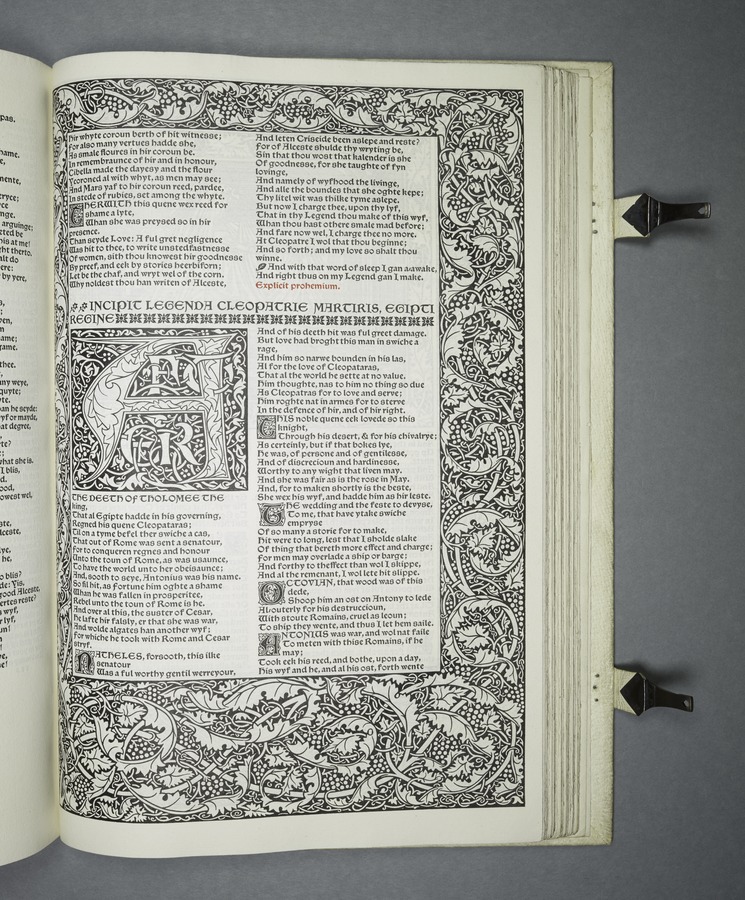 pas.
hame.
arguinge;
his at me!
by yere,
ame;
game.
thee.
quyte;
ban he seyde:
at degree,
what she is.
I blis,
owest wel,
he,
o blis?
de: Yis,
good Alceste,
wyf,
Hir whyte coroun berth of hit witnesse;
For also many vertues hadde she,
As smale floures in hir coroun be.
In remembraunce of hir and in honour,
Cibella made the dayesy and the flour
Ycoroned al with whyt, as men may see;
And Mars yaf to hir coroun reed, pardee,
In stede of rubies, set among the whyte.
THERWITH this quene wex reed for
shame a lyte,
Whan she was preysed so in hir
presence.
Than seyde Love: A ful gret negligence
Was hit to thee, to write unstedfastnesse
Of women, sith thou knowest hir goodnesse
By preef, and eek by stories heerbiforn;
Let be the chaf, and wryt wel of the corn.
Why noldest thou han writen of Alceste,
And leten Criseide been aslepe and reste?
For of Alceste shulde thy wryting be,
Sin that thou wost that kalender is she
Of goodnesse, for she taughte of fyn
lovinge,
And namely of wyfhood the livinge,
And alle the boundes that she oghte kepe;
Thy litel wit was thilke tyme aslepe.
But now I charge thee, upon thy lyf,
That in thy Legend thou make of this wyf,
Whan thou hast othere smale mad before;
And fare now wel, I charge thee no more.
At Cleopatre I wol that thou beginne;
And so forth; and my love so shalt thou
winne.
And with that word of sleep I gan aawake,
And right thus on my Legend gan I make.
Explicit prohemium.
INCIPIT LEGENDA CLEOPATRIE MARTIRIS, EGIPTI
REGINE
AFTER
THE DEETH OF THOLOMEE THE
king,
That al Egipte hadde in his governing,
Regned his quene Cleopataras;
Til on a tyme befel ther swiche a cas,
That out of Rome was sent a senatour,
For to conqueren regnes and honour
Unto the toun of Rome, as was usaunce,
To have the world unto her obeisaunce;
And, sooth to seye, Antonius was his name.
So fil hit, as Fortune him oghte a shame
Whan he was fallen in prosperitee,
Rebel unto the toun of Rome is he.
And over al this, the suster of Cesar,
He lafte hir falsly, er that she was war,
And wolde algates han another wyf;
For whiche he took with Rome and Cesar
stryf.
NATHELES, forsooth, this ilke
senatour
Was a ful worthy gentil werreyour,
And of his deeth hit was ful greet damage.
But love had broght this man in swiche a
rage,
And him so narwe bounden in his las,
Al for the love of Cleopataras,
That al the world he sette at no value.
Him thoughte, nas to him no thing so due
As Cleopatras for to love and serve;
Him roghte nat in armes for to sterve
In the defence of hir, and of hir right.
THIS noble quene eek lovede so this
knight,
Through his desert, & for his chivalrye;
As certeinly, but if that bokes lye,
He was, of persone and of gentilesse,
And of discrecioun and hardinesse,
Worthy to any wight that liven may.
And she was fair as is the rose in May.
And, for to maken shortly is the beste,
She wex his wyf, and hadde him as hir leste.
THE wedding and the feste to devyse,
To me, that have ytake swiche
empryse
Of so many a storie for to make,
Hit were to long, lest that I sholde slake
Of thing that bereth more effect and charge;
For men may overlade a ship or barge;
And forthy to theffect than wol I skippe,
And al the remenant, I wol lete hit slippe.
OCTOVIAN, that wood was of this
dede,
Shoop him an ost on Antony to lede
Al outerly for his destruccioun,
With stoute Romains, cruel as leoun;
To ship they wente, and thus I let hem saile.
ANTONIUS was war, and wol nat faile
To meten with thise Romains, if he
may;
Took eek his reed, and bothe, upon a day,
His wyf and he, and al his ost, forth wente